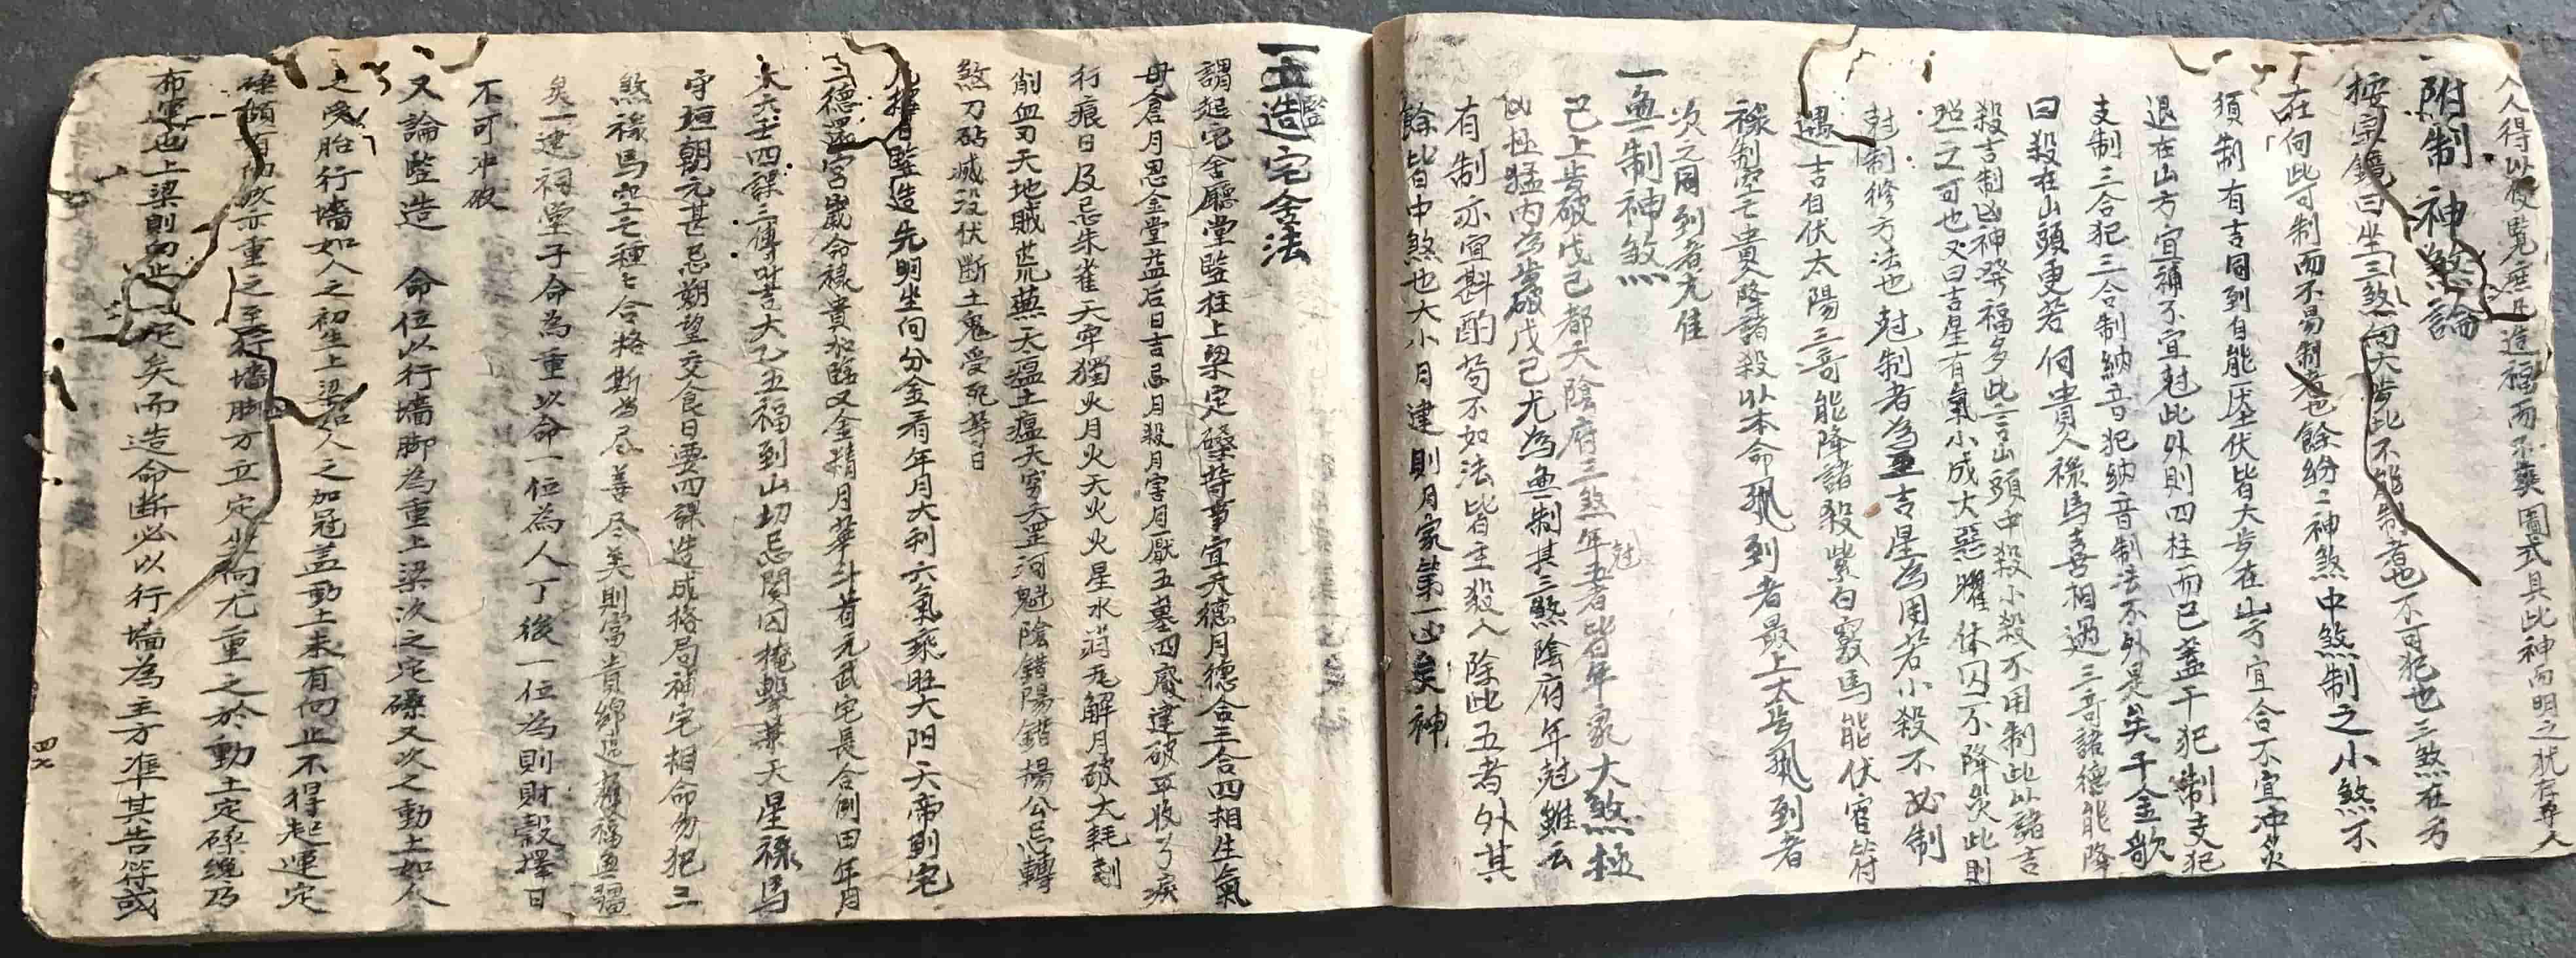 人人得以披覧庶日造福而不爽圖式具此神而明之犹存乎人
一附制神煞論
按宗鏡曰坐三煞向太歩此不能制者也不可犯也三煞在方
在向此可制而不易制者也餘紛二神煞中煞制之小煞不
須制有吉同到自能压伏皆太歩在山方宜合不宜冲災
退在山方宜補不宜尅此外則四柱而已蓋干犯制支犯
支制三合犯三合制納音犯納音制法不外是矣千金歌
曰殺在山頭更若何貴人禄馬喜相遇三奇諸德能降
殺吉制凶神發福多此言山頭中殺小殺不用制此以諸吉
照之可也又曰吉星有氣小成大惡耀休囚不降災此則
尅制修方法也尅制者為主吉星為用若小殺不必制
遇吉自伏太陽三奇能降諸殺紫白竅馬能伏官符
禄制空亡貴人降諸殺以本命飛到者最上太歩飛到者
次之同到者尤佳
一無制神煞
己上歩破戊己都天陰府三煞年尅五者皆年家大煞極
凶極猛内為歩破戊己尤為無制其三煞陰府年尅雖云
有制亦宜斟酌苟不如法皆主殺人除此五者外其
餘皆中煞也大小月建則月家第一凶矣神
一竪造宅舍法
謂起宅舍廳堂竪柱上梁定磉等事宜天德月德合三合四相生氣
母倉月恩金堂益后日吉忌月殺月害月厭五墓四廢建破平收了戾
行痕日及忌朱雀天牢獨火月火天火火星水消瓦解月破大耗刮
削血刃天地賊荒蕪天瘟土瘟天穷天罡河魁陰錯陽錯楊公忌轉
煞刀砧滅没伏断土鬼受死等日
凡擇日竪造先明坐向分金看年月大利六氣乘旺太阳天帝到宅
二德逐宮嵗命禄貴加臨又金精月華斗首元武宅長合側田年月
太六壬四課三傳吐吉大乙五福到山切忌閗囚掩擊兼天星禄馬
守垣朝元甚忌朔望交食日要四課造成格局補宅相命勿犯三
煞禄馬空亡種七合格斯為尽善尽美則富貴綿遠蕃福無疆
矣一建祠堂子命為重以命一位為人丁後一位為則財穀擇日
不可冲破
又論竪造 命位以行墻脚為重上梁次之定磉又次之動土如人
之受胎行墻如人之初生上梁如人之加冠蓋動土未有向止不得起運定
磉頗有向故亦重之至行墻脚方立定坐向尤重之於動土定磉纔乃
布運也上梁則勿止一定矣而造命断必以行墻為主方準其告符或
四七